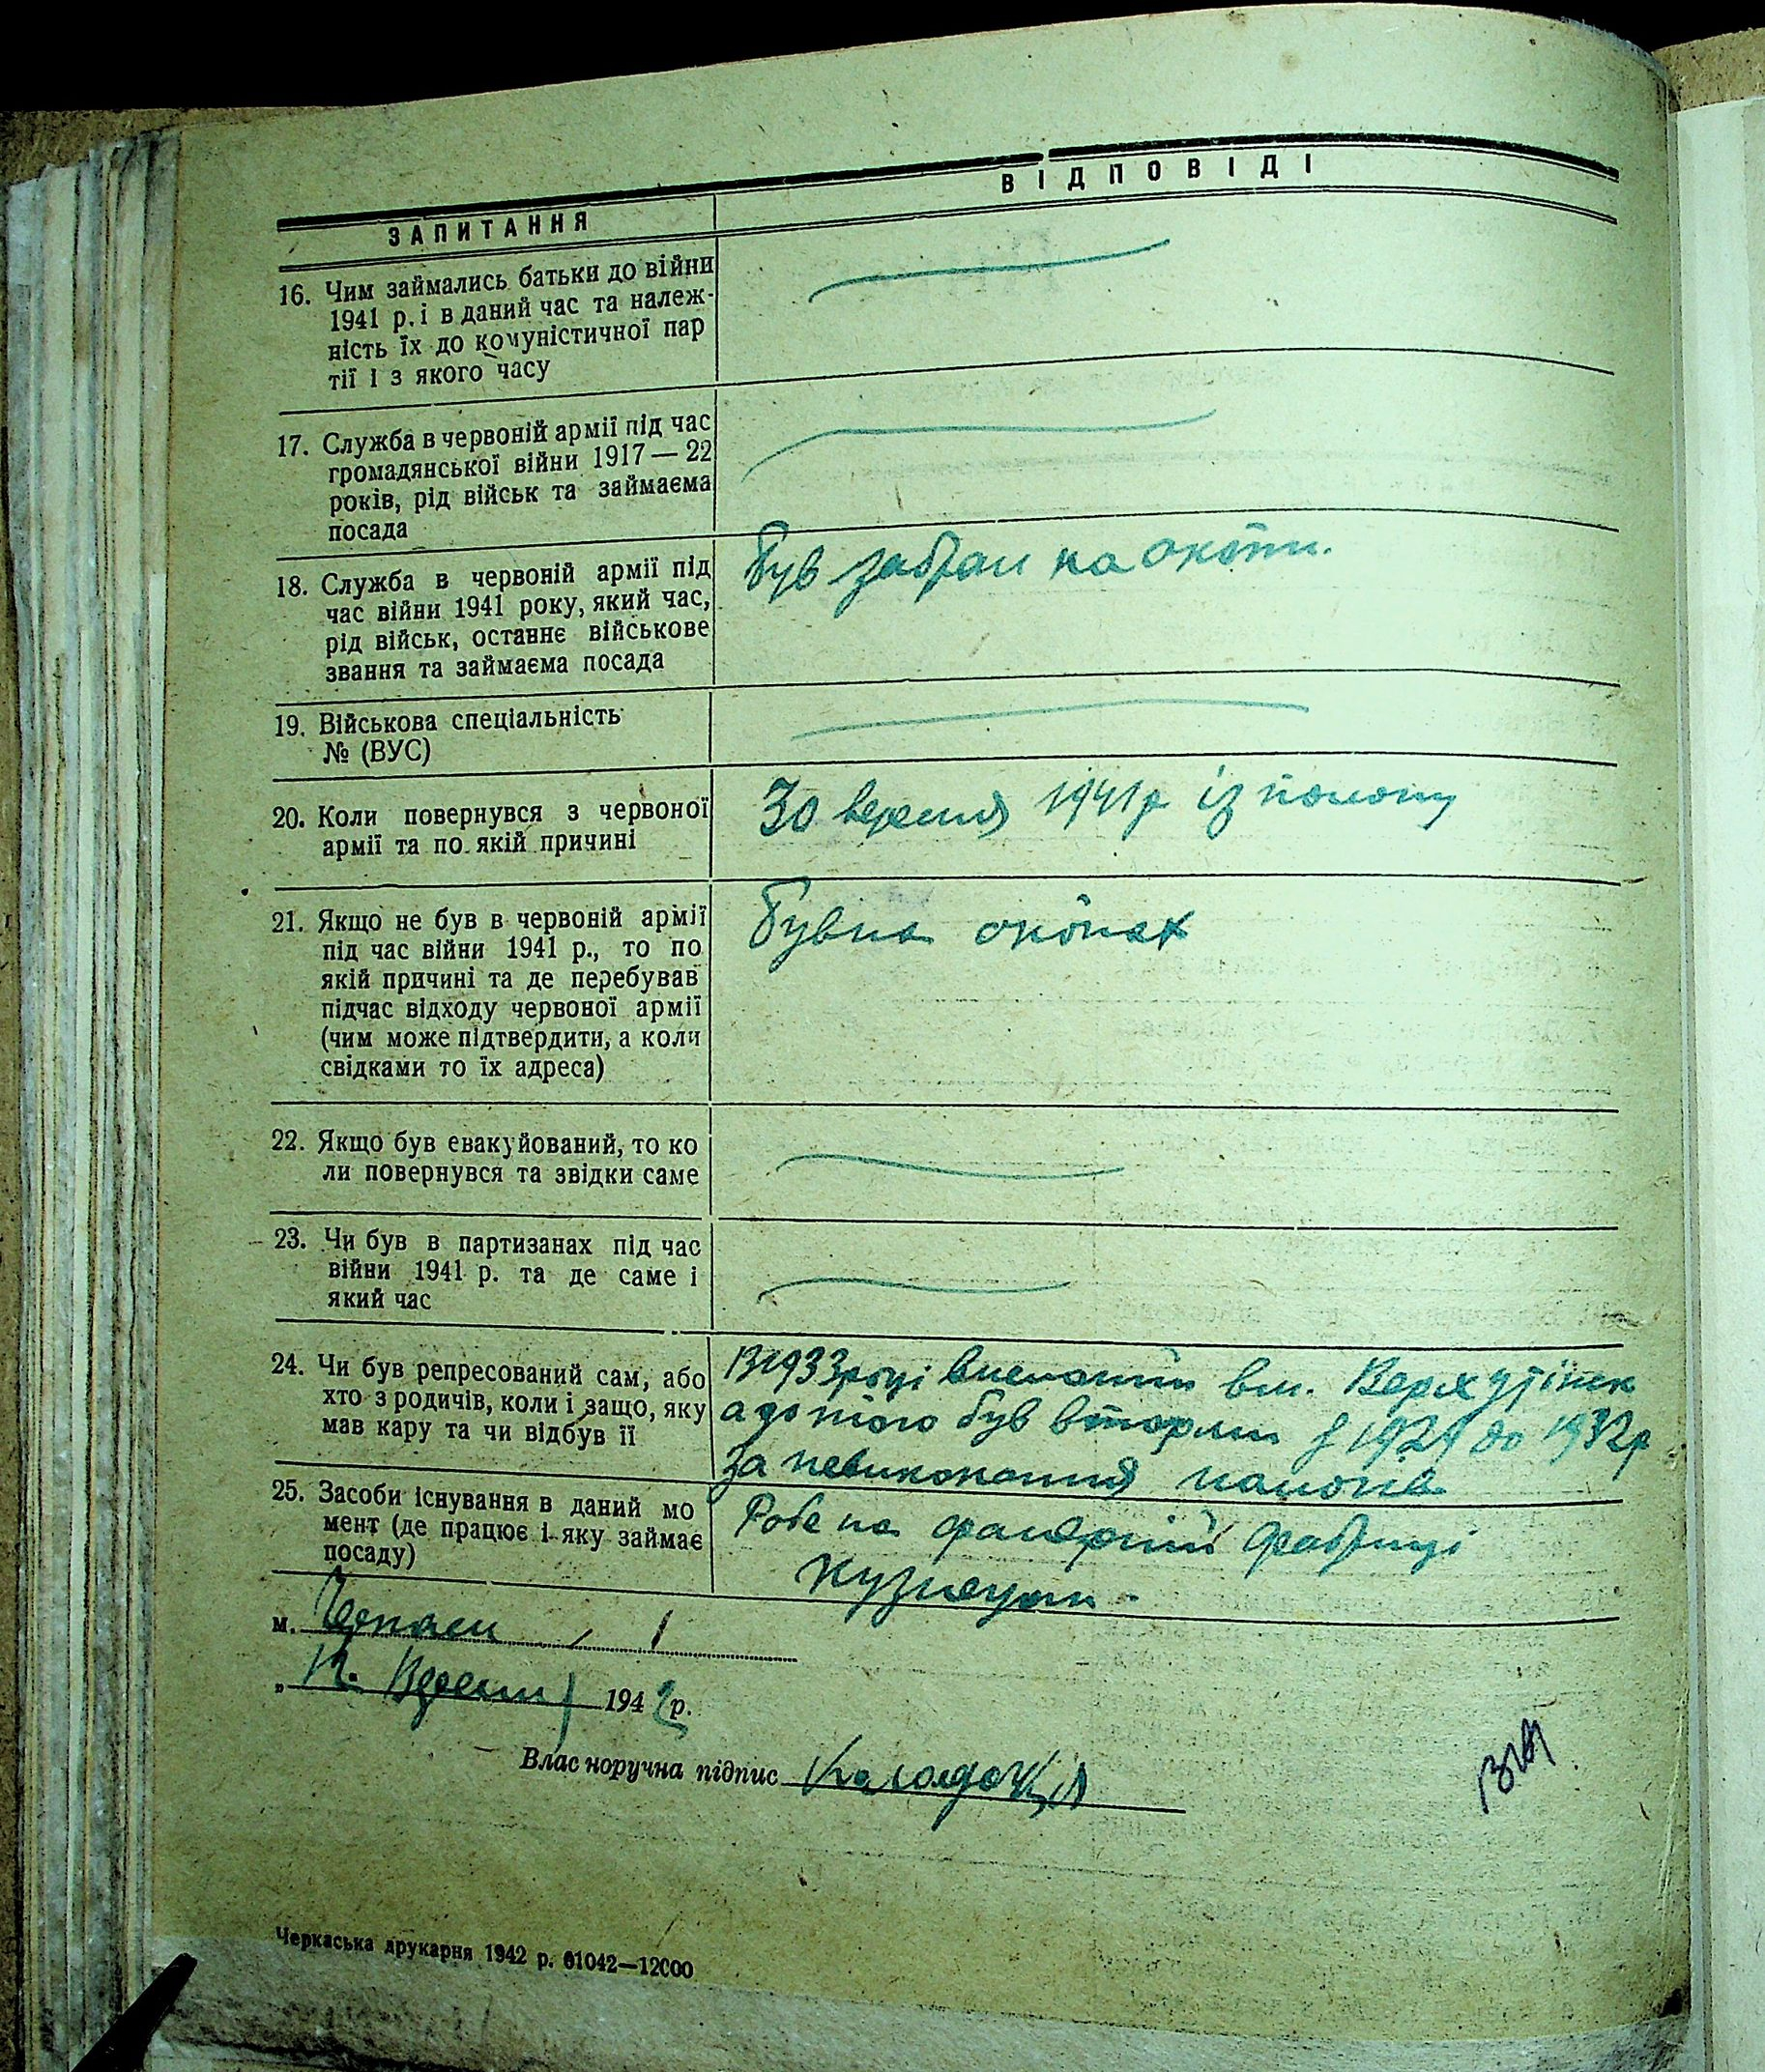 ЗАПИТАННЯ
ВІДПОВІДІ
16. Чим займались батьки до війни
1941 р. і в даний час та належ-
ність їх до комуністичної пар
тії і з якого часу
17. Служба в червоній армії під час
громадянської війни 1917 — 22
років, рід військ та займаєма
посада
18. Служба в червоній армії під
час війни 1941 року, який час,
рід військ, останнє військове
звання та займаєма посада
був забран на окопи.
19. Військова спеціальність
№ (ВУС)
20. Коли повернувся з червоної
армії та по якій причині
30 вересня 1941 р із полону
21. Якщо не був в червоній армії
під час війни 1941 р., то по
якій причині та де перебував
підчас відходу червоної армії
(чим може підтвердити, а коли
свідками то їх адреса)
Був на окопах
22. Якщо був евакуйований, то ко
ли повернувся та звідки саме
23. Чи був в партизанах під час
війни 1941 р. та де саме і
який час
24. Чи був репресований сам, або
хто з родичів, коли і защо, яку
мав кару та чи відбув її
В 1933 році висланий в м.
а до того був в тюрми з до 1932 р
за невиконання налогів
25. Засоби існування в даний мо
мент (де працює і яку займає
посаду)
Робе на фанерній фабриці
Кузнецом.
м. Черкаси
„ 12. Вересня 1942 р.
Власноручна підпис
Черкаська друкарня 1942 р. 01042—12000